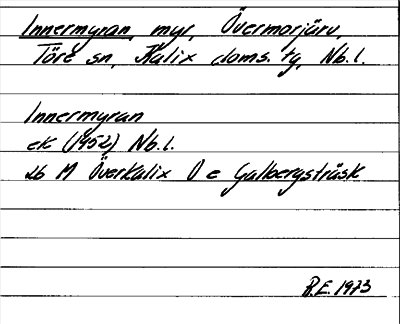 Innermyran, myr, Övermorjärv,
Töre sn, Kalix doms. tg, Nb.l.
Innermyran
ek (1952) Nb.l.
26 M Överkalix O e Galbergsträsk
R.E. 1973